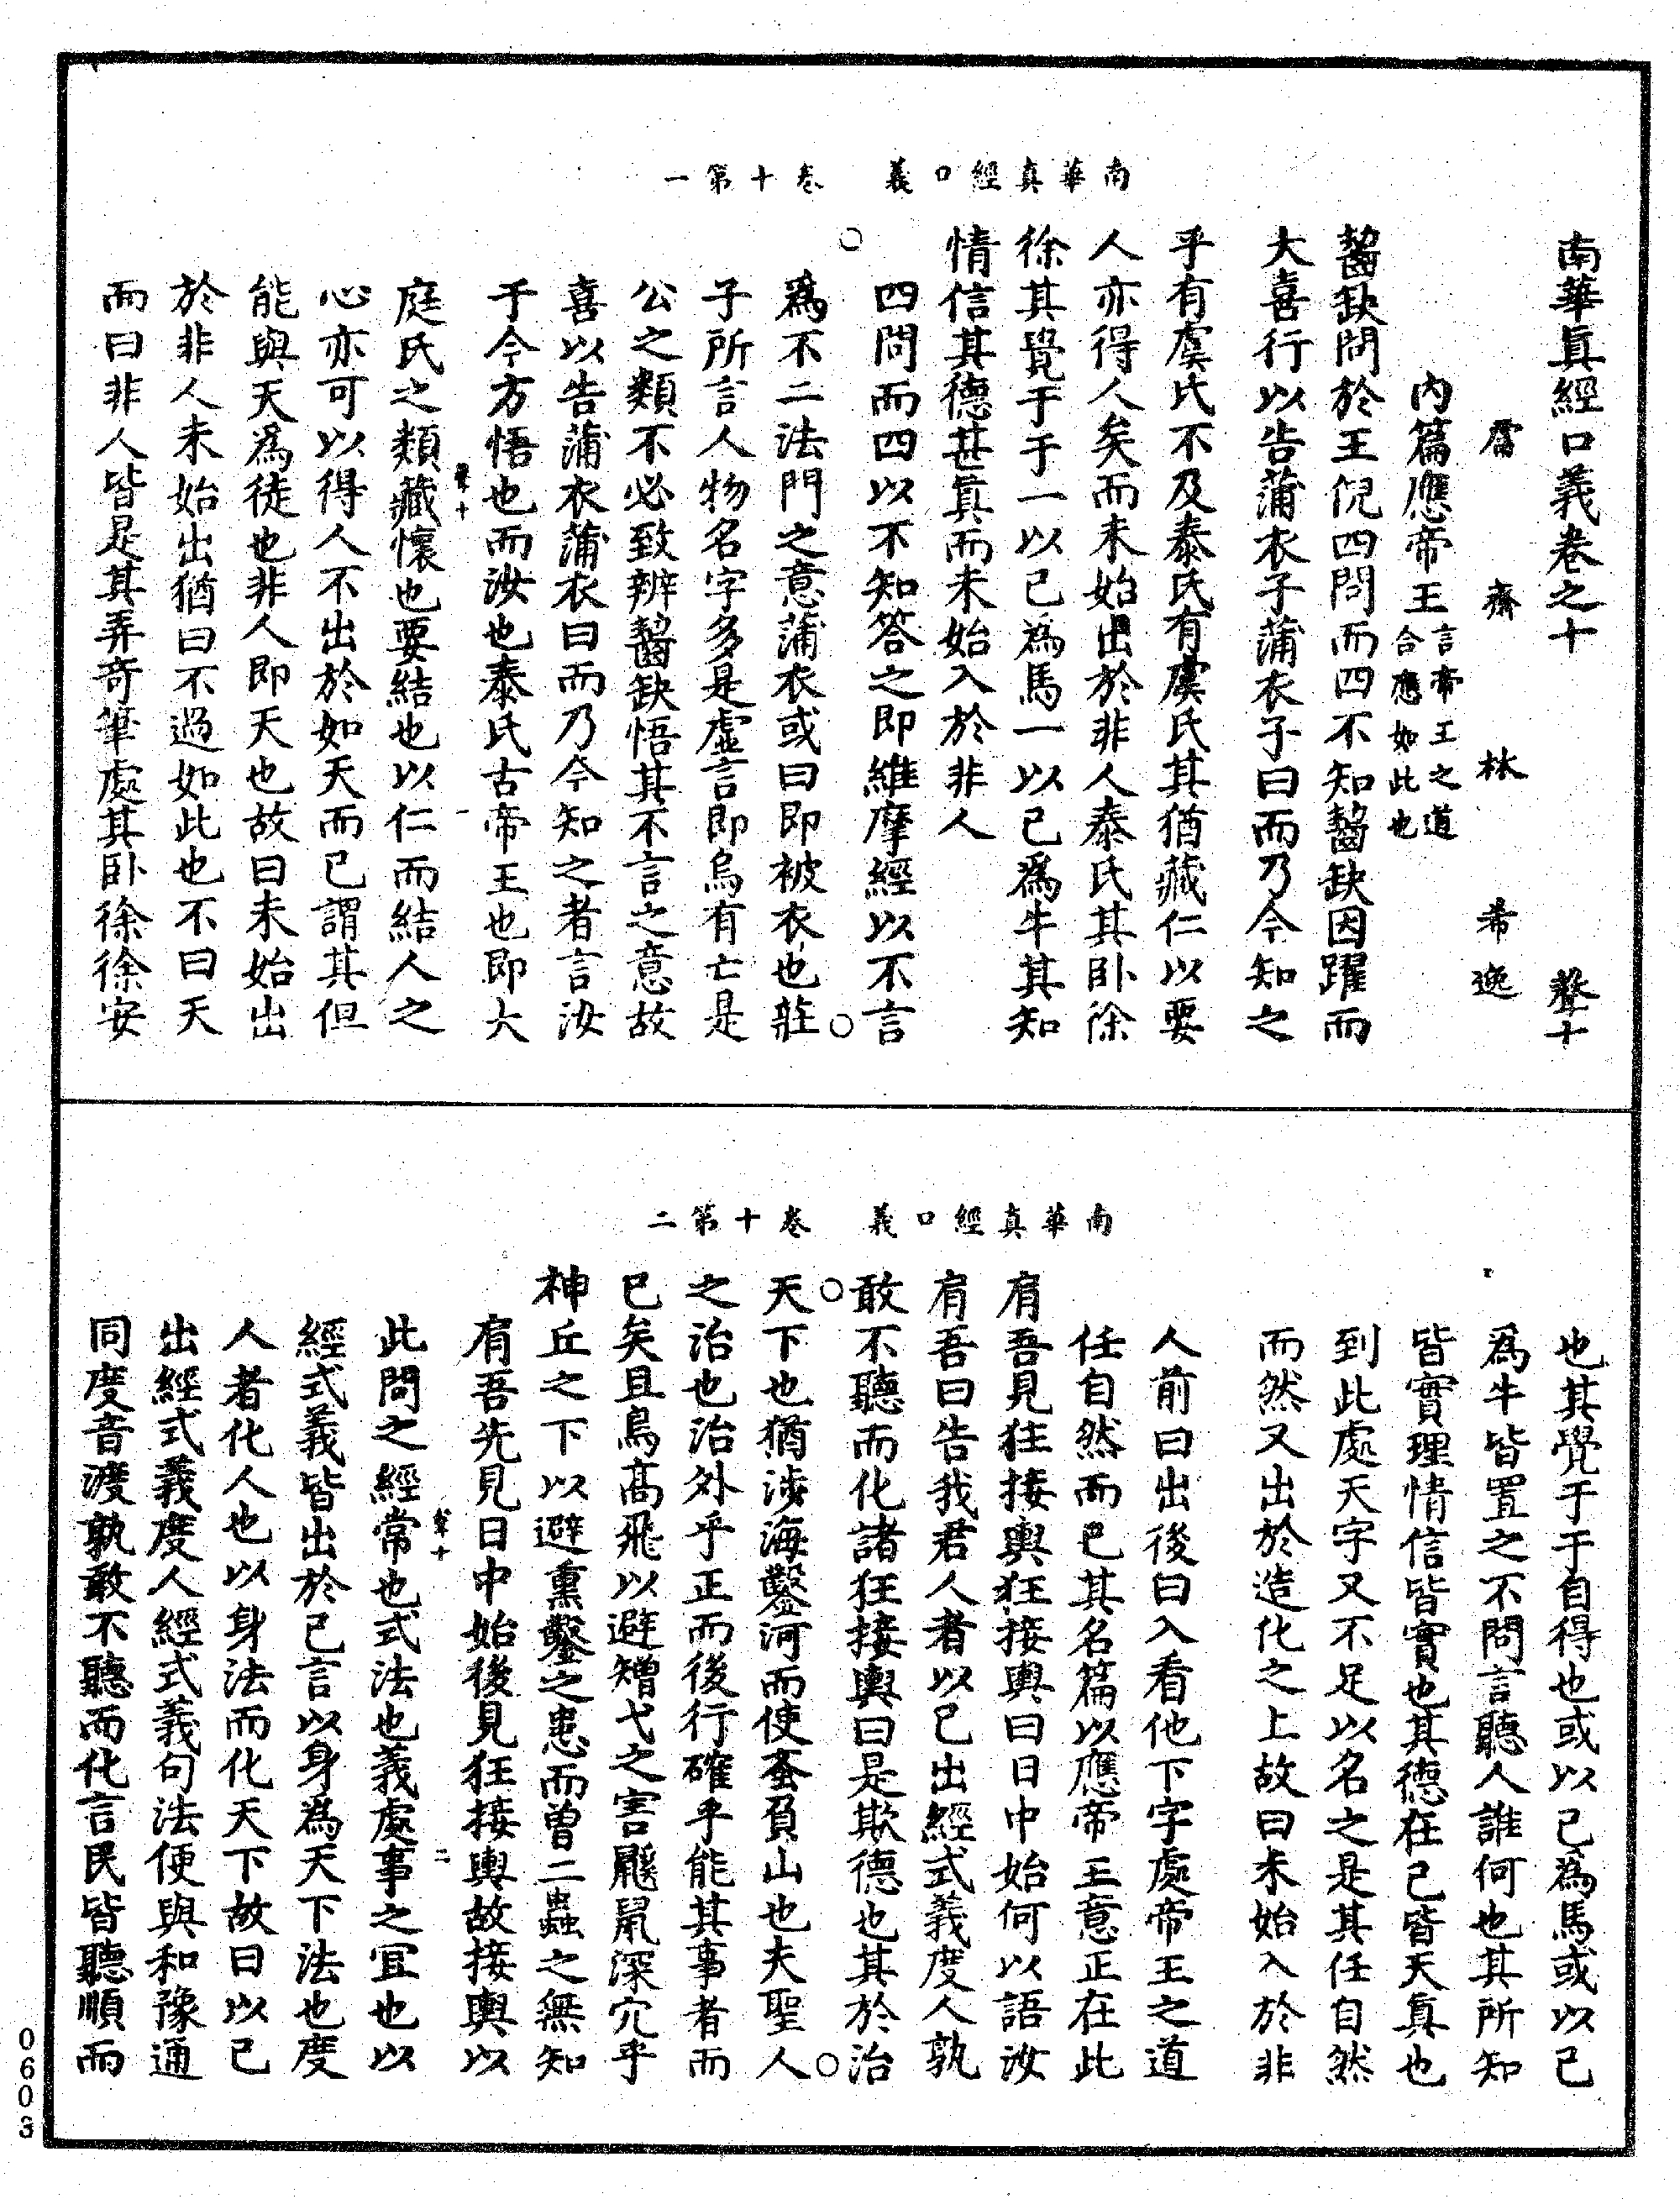 南華真經口義　卷十第一
南華眞經口義卷之十　　聲十
鬳齋林希逸
內篇應帝王言帝王之道合應如此也
齧缺問於王倪四問而四不知齧缺因躍而
大喜行以告蒲衣子蒲衣子曰而乃今知之
乎有虞氏不及泰氏有虞氏其猶藏仁以要
人亦得人矣而未始出於非人泰氏其臥徐
徐其覺于于一以已爲馬一以已爲牛其知
情信其德甚眞而未始入於非人
四問而四以不知答之即維摩經以不言
爲不二法門之意蒲衣或曰即被衣也莊
子所言人物名字多是虛言即烏有亡是
公之類不必致辨齧缺悟其不言之意故
喜以告蒲衣蒲衣曰而乃今知之者言汝
于今方悟也而汝也泰氏古帝王也即大
庭氏之類藏懷也要結也以仁而結人之
心亦可以得人不出於如天而已謂其但
能與天爲徒也非人即天也故曰未始出
於非人未始出猶曰不過如此也不曰天
而曰非人皆是其弄奇筆處其臥徐徐安
聲十　一
南華真經口義　卷十第二
也其覺于于自得也或以已爲馬或以已
爲牛皆置之不問言聽人誰何也其所知
皆實理情信皆實也其德在已皆天真也
到此處天字又不足以名之是其任自然
而然又出於造化之上故曰未始入於非
人前曰出後曰入看他下字處帝王之道
任自然而已其名篇以應帝王意正在此
肩吾見狂接輿狂接輿曰日中始何以語汝
肩吾曰告我君人者以已出經式義度人孰
敢不聽而化諸狂接輿曰是欺德也其於治
天下也猶涉海鑿河而使蚉負山也夫聖人
之治也治外乎正而後行確乎能其事者而
已矣且鳥高飛以避矰弋之害鼷鼠深穴乎
神丘之下以避熏鑿之患而曾二蟲之無知
肩吾先見日中始後見狂接輿故接輿以
此問之經常也式法也義處事之宜也以
經式義皆出於已言以身爲天下法也度
人者化人也以身法而化天下故曰以已
出經式義度人經式義句法便與和豫通
同度音渡孰敢不聽而化言民皆聽順而
聲十　二
0603